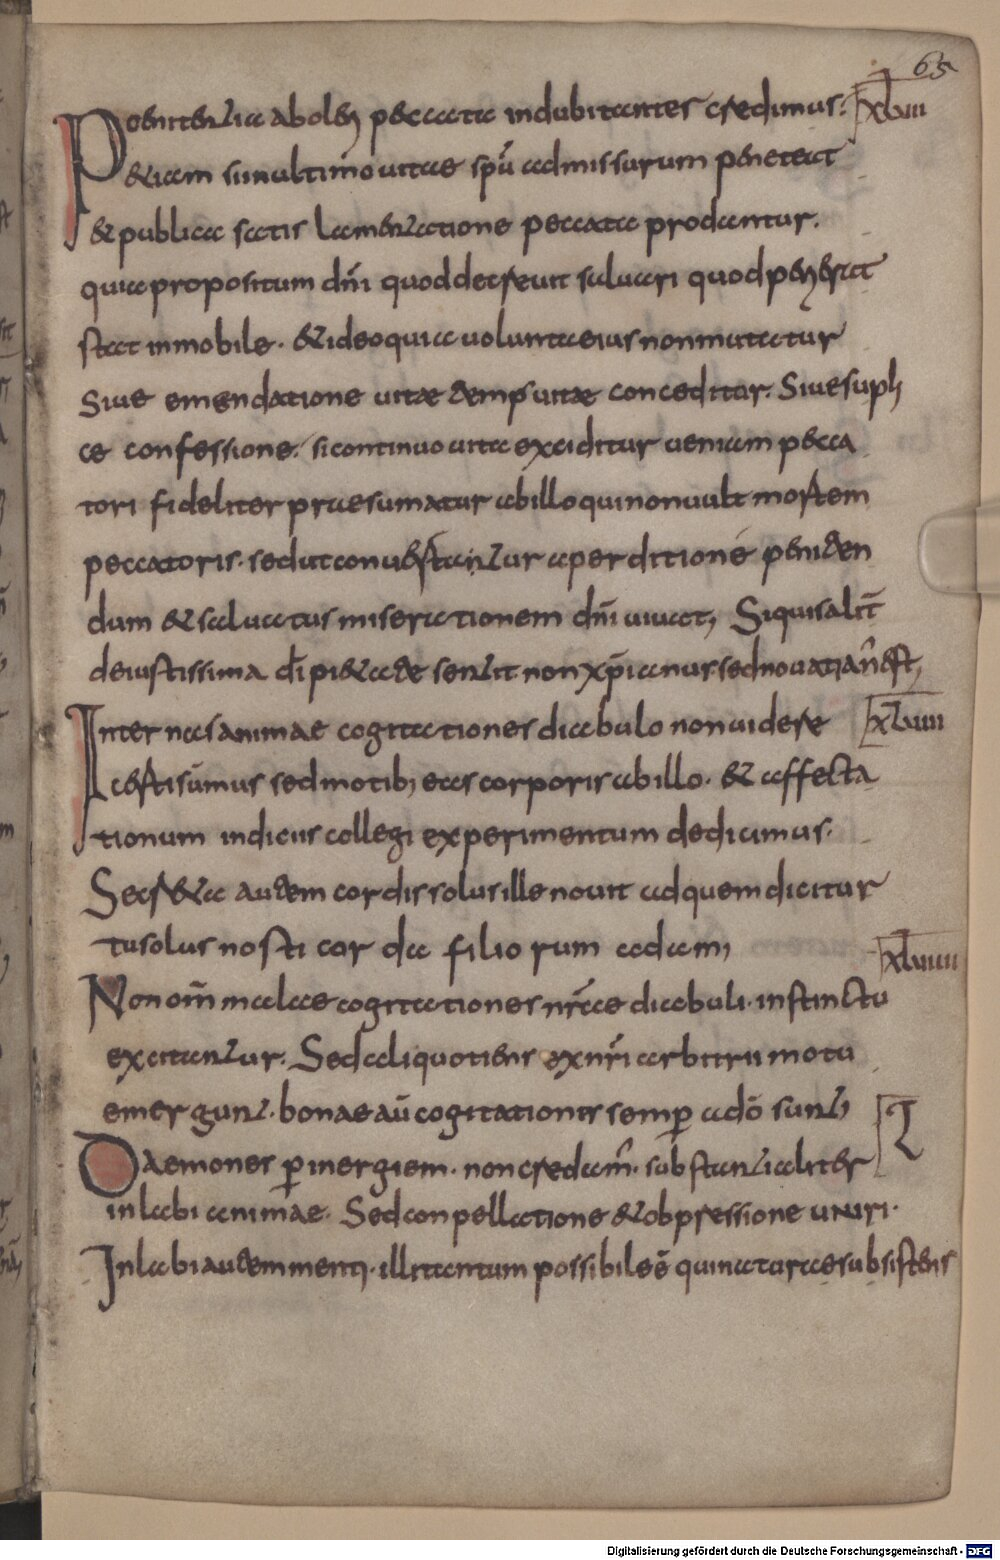 65
Poenitentia aboleri peccata indubitanter credimus. xlvii
etiam si in ultimo uitae spū admissurum peneteat
et publica sactis lamentatione peccata prodantur.
quia propositum dn̄i quod decreuit saluari quod perierat
stat inmobile. et ideo quia uoluntas eius non mutatur
Siue emendatione uitae temp uitae conceditur. Siue suppli
ce confessione. si continuo uita exciditur ueniam pecca
tori fideliter praesumatur ab illo qui non uult mortem
peccatoris. sed ut conuertantur a perditione peniten
dum et saluatus miseratione dn̄i uiuat; Si quis alit̄
de iustissima dī pietate sentit non xp̄ianus sed nouatian est;
Internas animae cogitationes diabulo non uidere xlviii
certi sumus sed motib; eas corporis ab illo. et affecta
tionum indiciis collegi experimentum dedicimus.
Secreta autem cordis solus ille nouit ad quem dicitur
tu solus nosti corda filiorum adam;
xlviiii
Non om̄ malae cogitationes nr̄ae diabuli instinctu
excitantur. Sed aliquotiens ex nr̄i arbitrii motu
emergunt. bonae aū cogitationis semp̄ a dō sunt;
L
Daemones p̄ inergiam. non credam̄. substantialiter
inlabi animae. Sed conpellatione et obpressione uniri.
Inlabi autem menti. illi tantum possibile ē qui natura esubsistens
Digitalisierung gefördert durch die Deutsche Forschungsgemeinschaft - DFG